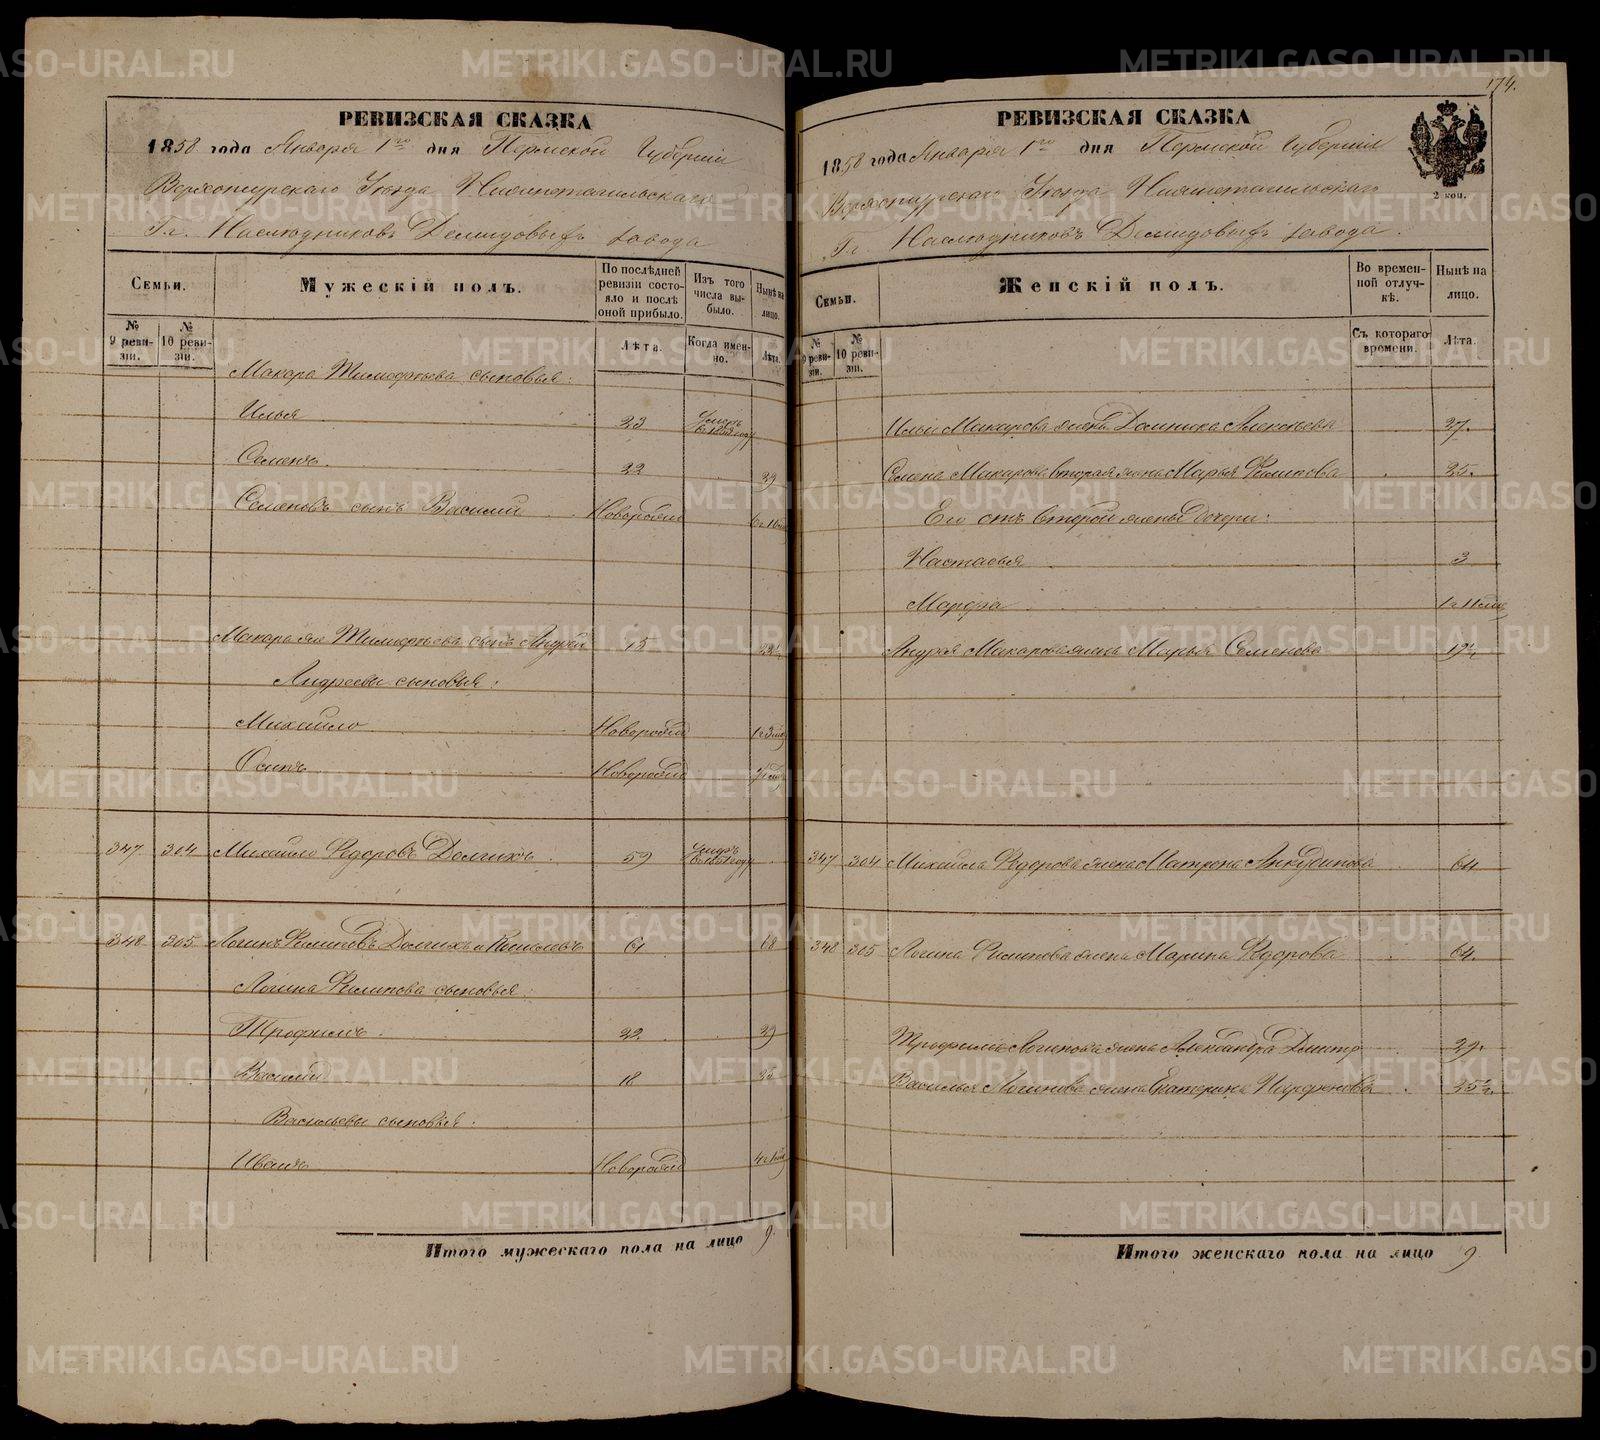 РЕВИЗСКАЯ СКАЗКА
1858 года Января 1го дня Пермской Губерніи
Верхотурскаго Уѣзда Нижнетагильскаго
Гг. Наслѣдниковъ Демидовыхъ завода
Семьи.
Мужескій полъ.
По послѣдней ревизіи состояло и послѣ оной прибыло.
Изъ того числа выбыло.
Нынѣ на лицо.
№ 9 ревизіи.
№ 10 ревизіи.
Лѣта.
Когда именно.
Лѣта.
Макара Тимофѣева сыновья:
Илья 23
Семенъ 22 29
Семеновъ сынъ Василій Новорожд
Макара Тимофѣева сынъ Андрей 15
Андреевы сыновья:
Михайло Новорожд
Осипъ Новорожд
347 304 Михайло Федоровъ Долгихъ 59
348 305 Логинъ Филиповъ Долгихъ 61 68
Логина Филипова сыновья:
Трофимъ 22 29
Василій 18 25
Васильевы сыновья:
Иванъ Новорожд
Итого мужескаго пола на лицо 9.
174.
РЕВИЗСКАЯ СКАЗКА
1858 года Января 1го дня Пермской Губерніи
Верхотурскаго Уѣзда Нижнетагильскаго
Гг Наслѣдниковъ Демидовыхъ завода.
2 коп.
Семьи.
Женскій полъ.
Во временной отлучкѣ.
Нынѣ на лицо.
№ 9 ревизіи.
№ 10 ревизіи.
Съ котораго времени.
Лѣта.
Ильи Макарова жена Домника Алексѣева 27.
Семена Макарова вторая жена Марья Филипова 25.
Его отъ второй жены дочери:
Настасья 3
Марфа
Андрея Макарова жена Марья Семенова
347 304 Михайла Федорова жена Матрена Анкудинова 64
348 305 Логина Филипова жена Марина Федорова 64.
Трофима Логинова жена Александра Дмитр 29.
Василья Логинова жена Екатерина Парфенова
Итого женскаго пола на лицо 9
METRIKI.GASO-URAL.RU